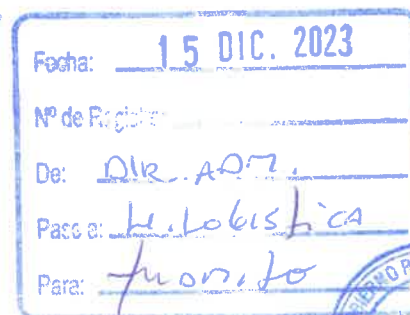 Fecha: 15 DIC. 2023
Nº de Registro:
De: DIR. ADM.
Pase a: U. Logistica
Para: